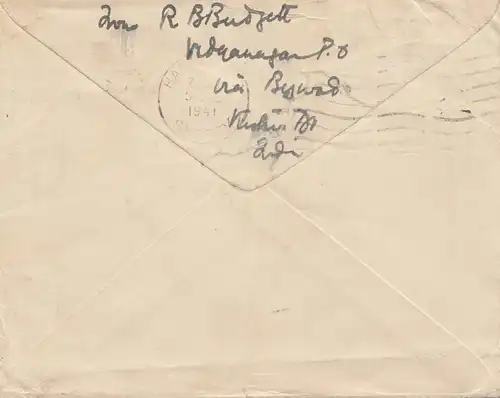 From R B Budgett
Vidyanagar P.O
via Bezwad
Kistna Dt
India
1941